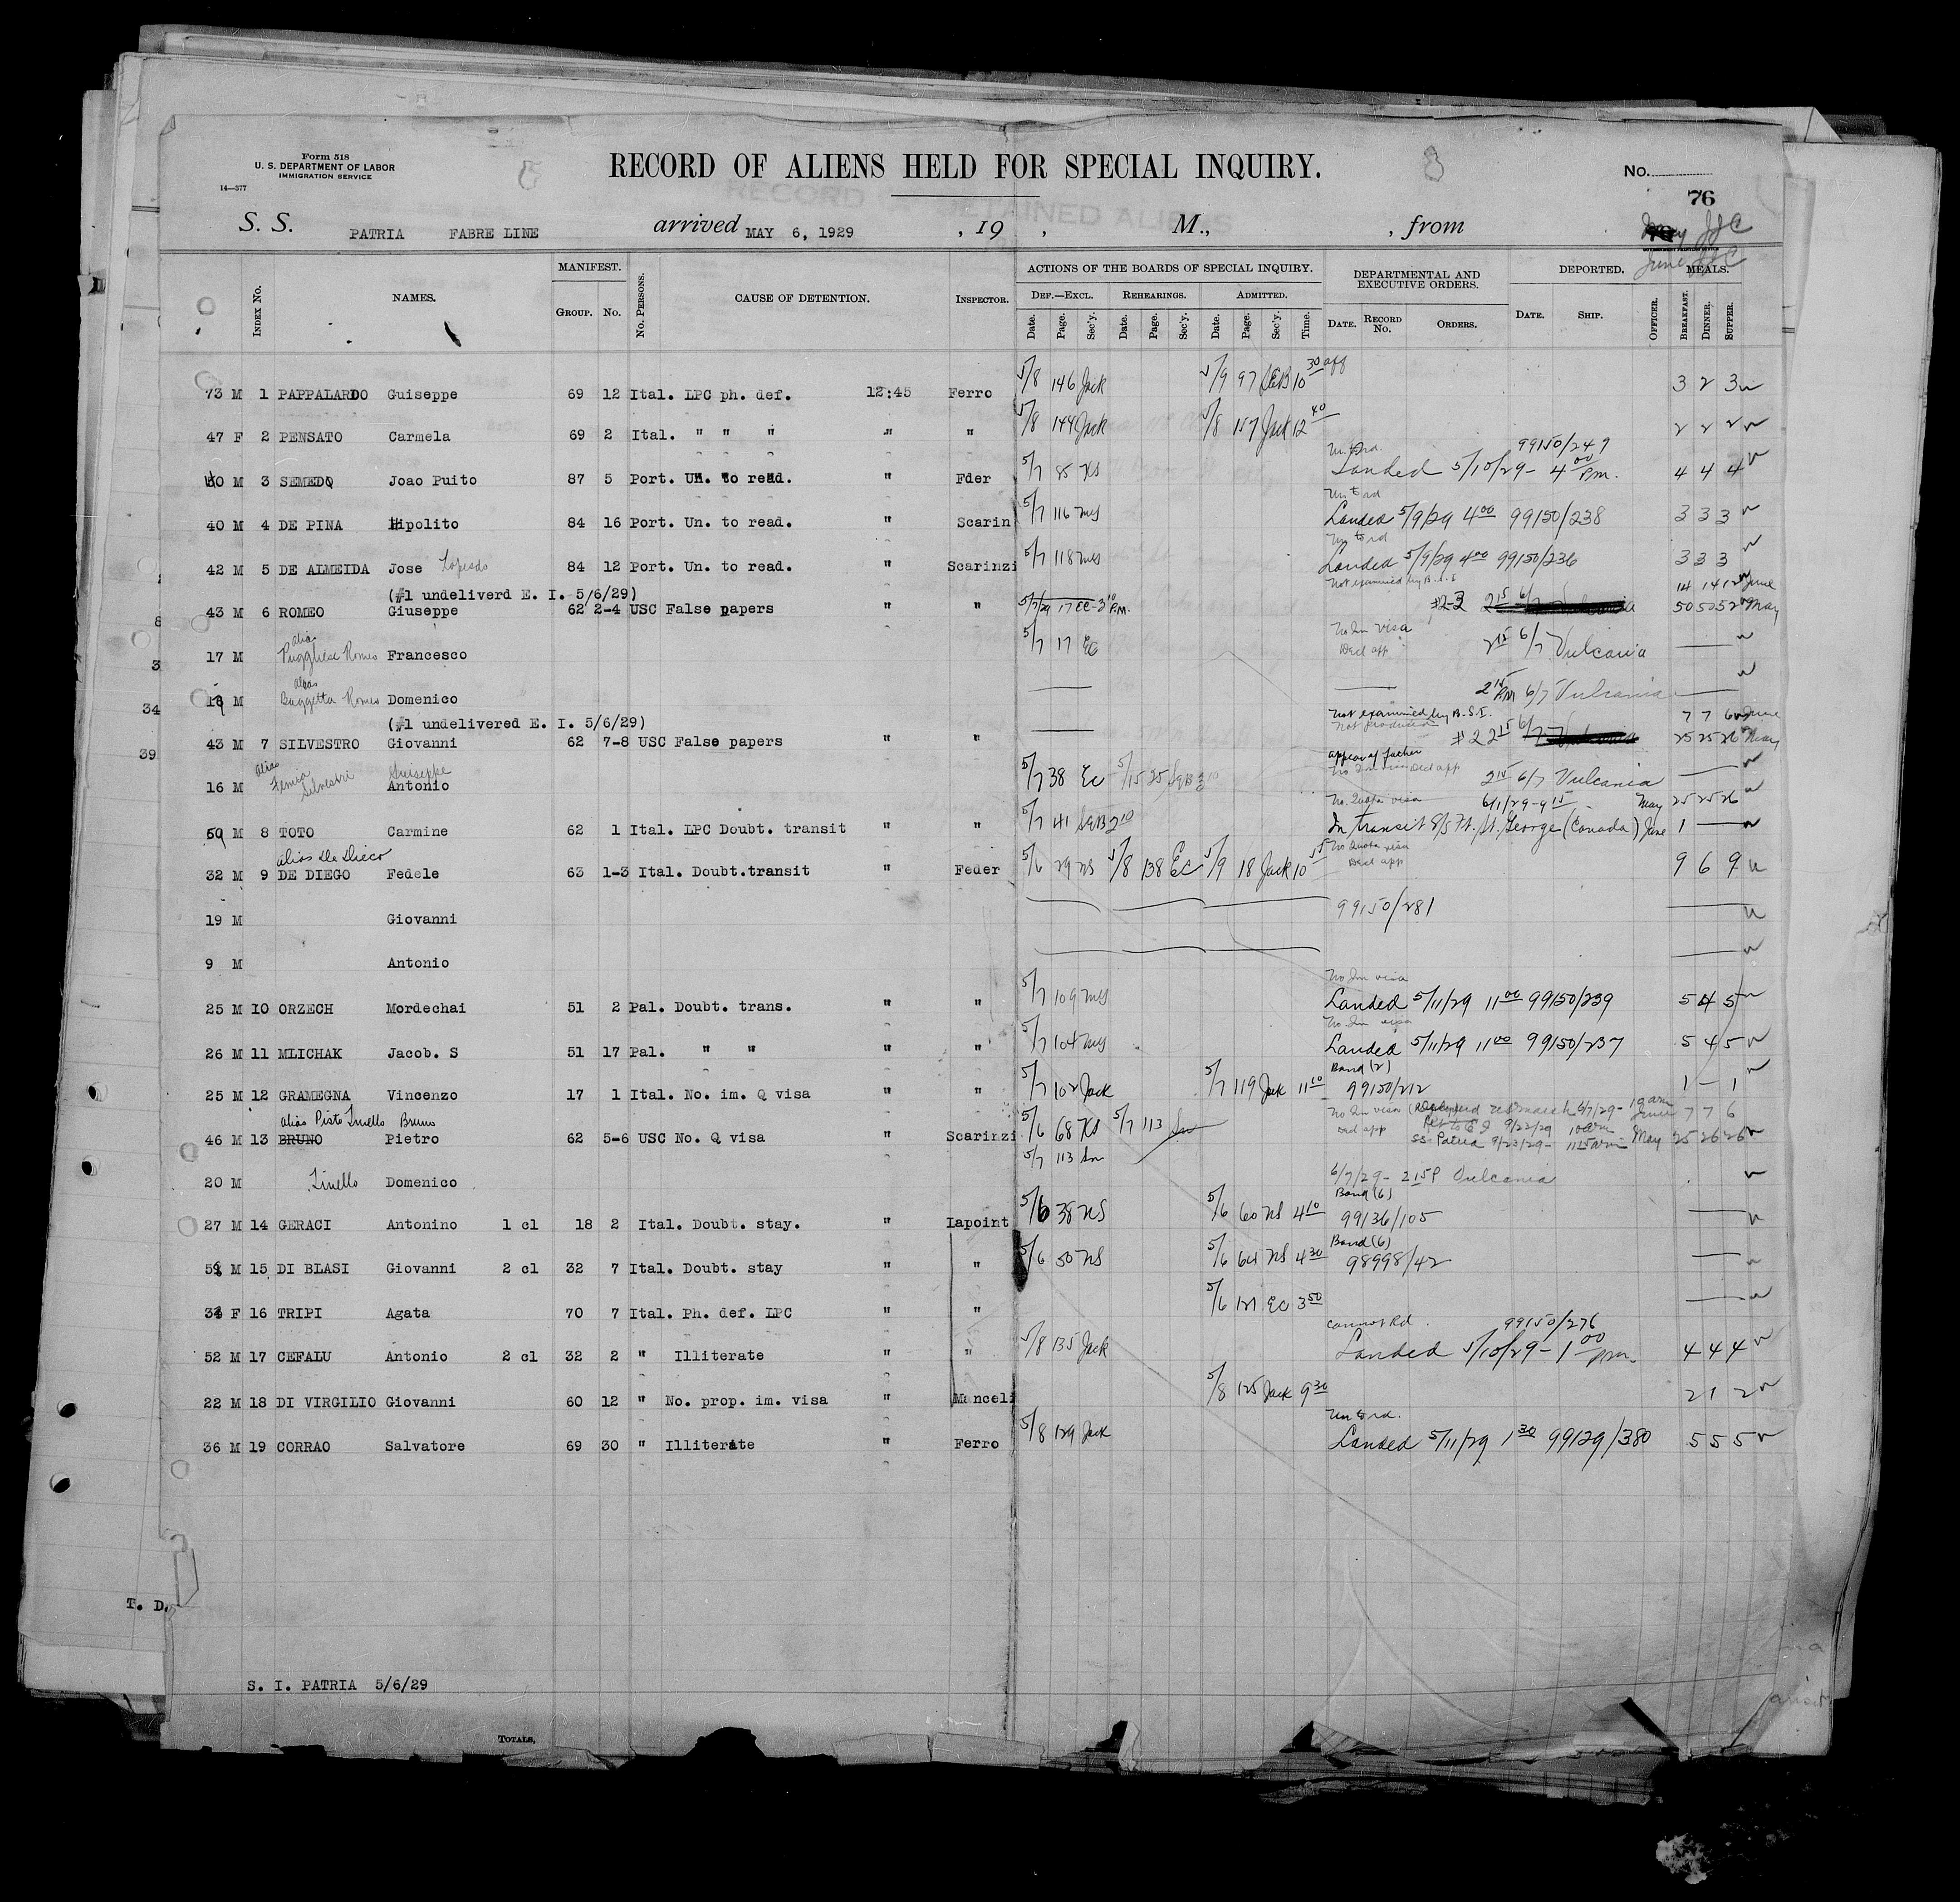 Form 518
U. S. DEPARTMENT OF LABOR
IMMIGRATION SERVICE
14—377
RECORD OF ALIENS HELD FOR SPECIAL INQUIRY.
No.
76
S. S. PATRIA FABRE LINE arrived MAY 6, 1929 , 19 , M., , from
MANIFEST. ACTIONS OF THE BOARDS OF SPECIAL INQUIRY. DEPARTMENTAL AND EXECUTIVE ORDERS. DEPORTED. MEALS.
INDEX NO. NAMES. GROUP. NO. NO. PERSONS. CAUSE OF DETENTION. INSPECTOR. DEF.—EXCL. REHEARINGS. ADMITTED.
Date. Page. Sec'y. Date. Page. Sec'y. Date. Page. Sec'y. Time. DATE. RECORD NO. ORDERS. DATE. SHIP. OFFICER. BREAKFAST. DINNER. SUPPER.
73 M 1 PAPPALARDO Guiseppe 69 12 Ital. LPC ph. def. 12:45 Ferro 5/8 146 Jack 5/9 97 10 30 3 2 3
47 F 2 PENSATO Carmela 69 2 Ital. " " " " " 5/8 144 Jack 5/8 157 Jack 12 40 2 2 2
99150/249
M 3 SEMEDO Joao Puito 87 5 Port. Un. to read. " Fder 5/7 85 NS Landed 5/10/29 - 4 00 P.m. 4 4 4
40 M 4 DE PINA Hipolito 84 16 Port. Un. to read. " Scarin 5/7 116 Landed 5/9/29 4 00 99150/238 3 3 3
42 M 5 DE ALMEIDA Jose 84 12 Port. Un. to read. " Scarinzi 5/7 118 Landed 5/9/29 4 00 99150/236 3 3 3
(#1 undeliverd E. I. 5/6/29) Not examined by B.S.I 14 14 12 June
43 M 6 ROMEO Giuseppe 62 2-4 USC False papers " " 17 EC #2-3 2 15 6/7 50 50 52 May
alias
17 M Pugghese Romeo Francesco 5/7 17 EC No Im visa 2 15 6/7 Vulcania
alias
M Buggetta Romeo Domenico 2 15 PM 6/7 Vulcania
(#1 undelivered E. I. 5/6/29) Not examined by B.S.I. 7 7 6 June
43 M 7 SILVESTRO Giovanni 62 7-8 USC False papers " " #2 2 15 6/7 25 25 26 May
alias Femia Silvestri Guiseppe
16 M Antonio 5/7 38 EC 5/15 25 2 15 6/7 Vulcania
No. Quota visa 6/1/29 - 9 15 May 25 25 26
M 8 TOTO Carmine 62 1 Ital. LPC Doubt. transit " " 5/7 41 2 10 In transit S/S Ft. St. George (Canada) June 1
alias De Dieco No Quota visa
32 M 9 DE DIEGO Fedele 63 1-3 Ital. Doubt.transit " Feder 5/6 29 NS 5/8 138 EC 5/9 18 Jack 10 55 9 6 9
19 M Giovanni 99150/281
9 M Antonio
No Im visa
25 M 10 ORZECH Mordechai 51 2 Pal. Doubt. trans. " " 5/7 109 Landed 5/11/29 11 00 99150/239 5 4 5
No Im visa
26 M 11 MLICHAK Jacob. S 51 17 Pal. " " " " 5/7 104 Landed 5/11/29 11 00 99150/237 5 4 5
Bond (2)
25 M 12 GRAMEGNA Vincenzo 17 1 Ital. No. im. Q visa " " 5/7 102 Jack 5/7 119 Jack 11 10 99150/212 1 – 1
alias Pisto Tinello Bruno No Im visa June 7 7 6
46 M 13 BRUNO Pietro 62 5-6 USC No. Q visa " Scarinzi 5/6 68 NS 5/7 113 May 25 26 26
SS. Patria 9/23/29 - 11 15 am
5/7 113
20 M Tinello Domenico 6/7/29 - 2 15 P Vulcania
Bond (6)
27 M 14 GERACI Antonino 1 cl 18 2 Ital. Doubt. stay. " Lapoint 5/6 38 NS 5/6 60 NS 4 10 99136/105
Bond (6)
M 15 DI BLASI Giovanni 2 cl 32 7 Ital. Doubt. stay " " 5/6 50 NS 5/6 64 NS 4 30 98998/42
F 16 TRIPI Agata 70 7 Ital. Ph. def. LPC " " 5/6 121 EC 3 50
Cannot Rd. 99150/276
52 M 17 CEFALU Antonio 2 cl 32 2 " Illiterate " " 5/8 135 Jack Landed 5/10/29 - 1 00 pm. 4 4 4
22 M 18 DI VIRGILIO Giovanni 60 12 " No. prop. im. visa " Manceli 5/8 125 Jack 9 30 2 1 2
Un to rd.
36 M 19 CORRAO Salvatore 69 30 " Illiterate " Ferro 5/8 129 Jack Landed 5/11/29 1 30 99129/380 5 5 5
T. D.
S. I. PATRIA 5/6/29
TOTALS,